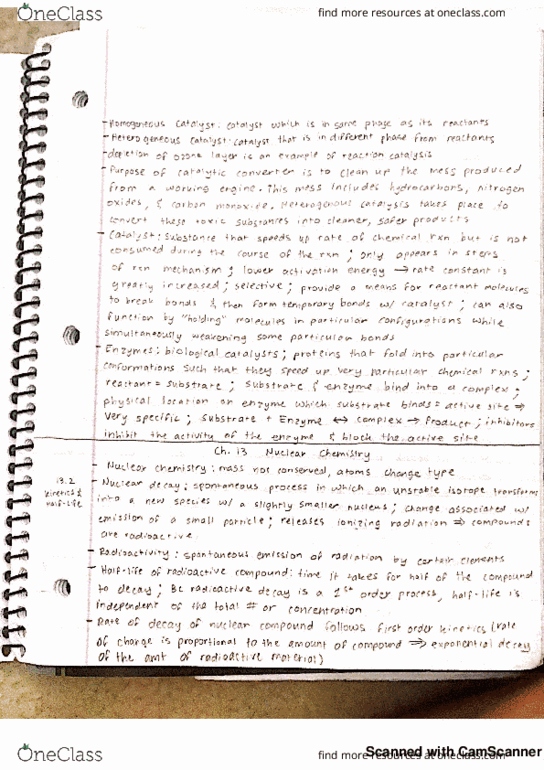 OneClass
find more resources at oneclass.com
- Homogeneous Catalyst: catalyst which is in same phase as its reactants
- Heterogeneous catalyst: catalyst that is in different phase from reactants
- depletion of ozone layer is an example of reaction catalysis
- Purpose of catalytic converter is to clean up the mess produced
from a working engine. This mess includes hydrocarbons, nitrogen
oxides, & carbon monoxide. Heterogenous catalysis takes place to
convert these toxic substances into cleaner, safer products
- Catalyst: Substance that speeds up rate of chemical rxn but is not
consumed during the course of the rxn; only appears in steps
of rxn mechanism; lower activation energy → rate constant is
greatly increased; selective; provide a means for reactant molecules
to break bonds & then form temporary bonds w/ catalyst; can also
function by "holding" molecules in particular configurations while
simultaneously weakening some particular bonds
- Enzymes: biological catalysts; proteins that fold into particular
conformations such that they speed up very particular chemical rxns;
reactant = substrate; substrate & enzyme bind into a complex;
physical location on enzyme which substrate binds = active site ⇒
very specific; substrate + Enzyme ↔ complex → Product; inhibitors
inhibit the activity of the enzyme & block the active site
Ch. 13 Nuclear Chemistry
- Nuclear chemistry: mass not conserved, atoms change type
13.2
kinetics &
half-life
- Nuclear decay: spontaneous process in which an unstable isotope transforms
into a new species w/ a slightly smaller nucleus; change associated w/
emission of a small particle; releases ionizing radiation ⇒ compounds
are radioactive
- Radioactivity: spontaneous emission of radiation by certain elements
- Half-life of radioactive compound: time it takes for half of the compound
to decay; Bc radioactive decay is a 1st order process, half-life is
independent of the total # or concentration
- Rate of decay of nuclear compound follows first order kinetics (rate
of change is proportional to the amount of compound ⇒ exponential decay
of the amt of radioactive material)
Scanned with CamScanner
OneClass
find more resources at oneclass.com